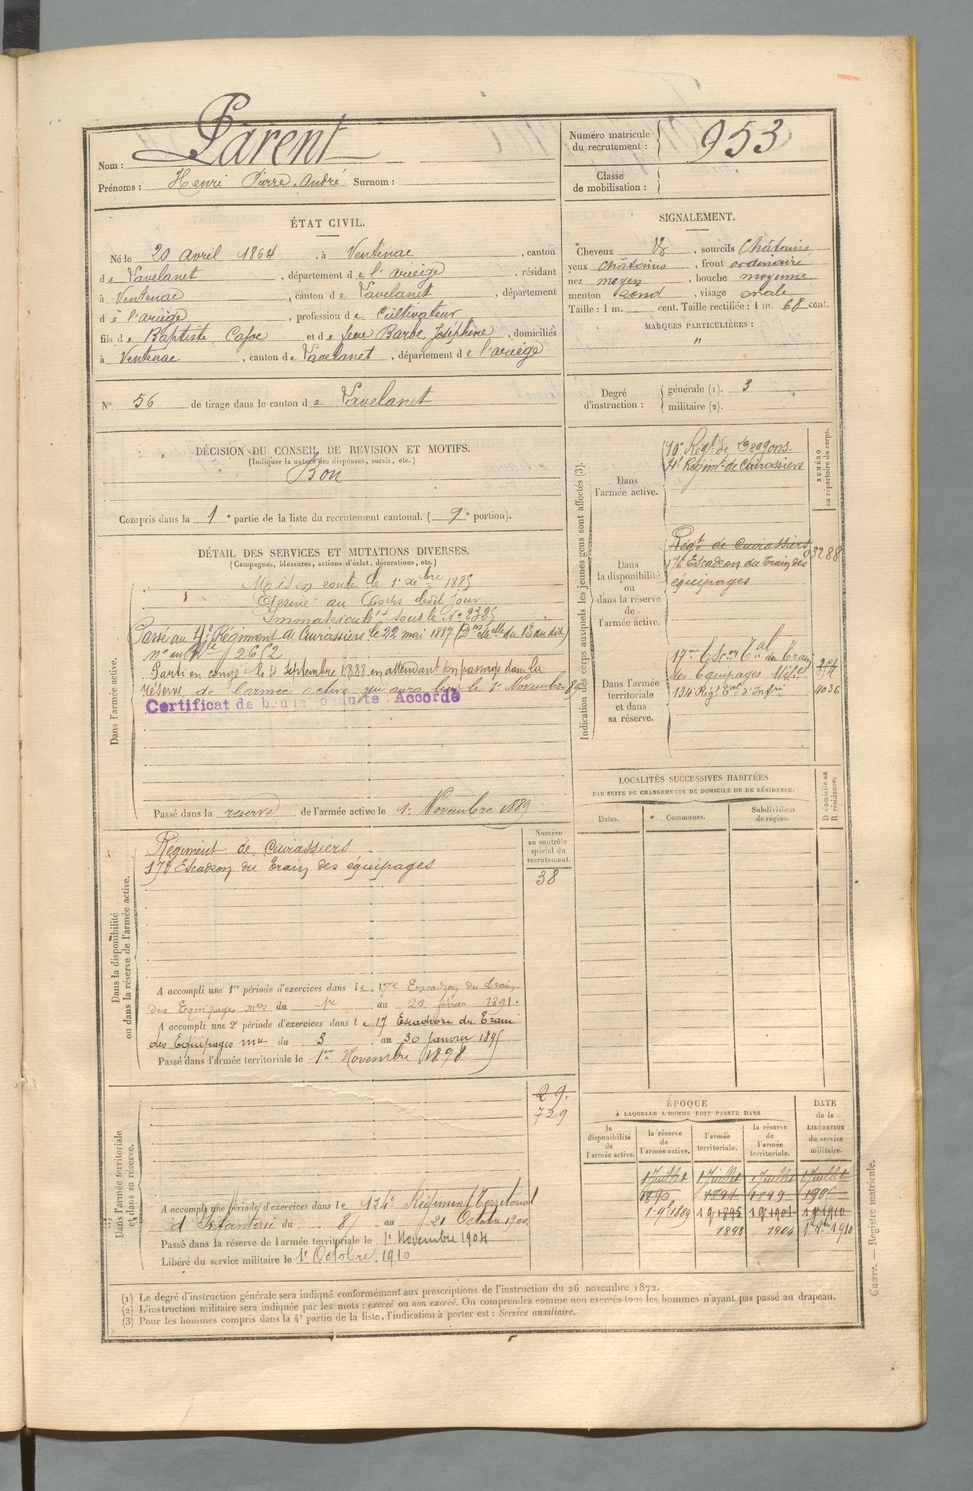 Nom : Parent
Prénoms : Henri Pierre André Surnom :
Numéro matricule du recrutement : 953
Classe de mobilisation :
ÉTAT CIVIL.
Né le 20 avril 1864, à Ventenac, canton
de Lavelanet, département de l'ariège, résidant
à Ventenac, canton de Lavelanet, département
de l'ariège, profession de Cultivateur
fils de Baptiste, et de feue Barbe, Joséphine, domiciliés
à Ventenac, canton de Lavelanet, département de l'ariège
N° 56 de tirage dans le canton de Lavelanet
SIGNALEMENT.
Cheveux, sourcils Châtains
yeux châtains, front ordinaire
nez moyen, bouche moyenne
menton rond, visage ovale
Taille : 1 m. cent. Taille rectifiée : 1 m. 68 cent.
MARQUES PARTICULIÈRES :
"
Degré d'instruction : générale (1). 3
militaire (2).
DÉCISION DU CONSEIL DE REVISION ET MOTIFS.
(Indiquer la nature des dispenses, sursis, etc.)
Bon
Compris dans la 1e partie de la liste du recrutement cantonal. (2e portion).
DÉTAIL DES SERVICES ET MUTATIONS DIVERSES.
(Campagnes, blessures, actions d'éclat, décorations, etc.)
Dans l'armée active.
Mis en route le 1er Xbre 1885
au Corps dudit jour
Immatriculé sous le N° 2325
Passé au 4e Régiment de Cuirassiers le 22 mai 1887
2612
Parti en congé le 4 septembre 1888 en attendant son passage dans la
réserve de l'armée active qui aura lieu le 1er Novembre 89
Certificat de bonne conduite Accordé
Passé dans la réserve de l'armée active le 1er Novembre 1889
Indication des corps auxquels les jeunes gens sont affectés (3).
NUMÉRO au répertoire du corps.
Dans l'armée active.
10e Regt de Dragons.
4e Régimt de Cuirassiers
Dans la disponibilité ou dans la réserve de l'armée active.
Régt de Cuirassiers
17e Escadron du Train des
équipages
3288
Dans l'armée territoriale et dans sa réserve.
17me Escon Tal du Train
des Equipages Milre
134 Régt Tal d'Infrie
4036
LOCALITÉS SUCCESSIVES HABITÉES
PAR SUITE DE CHANGEMENTS DE DOMICILE OU DE RÉSIDENCE.
Dates.
Communes.
Subdivisions de région.
D domicile ou R résidence.
Dans la disponibilité ou dans la réserve de l'armée active.
Numéro au contrôle spécial du recrutement.
Régiment de Cuirassiers
17e Escadron du Train des équipages
38
A accompli une 1re période d'exercices dans le 17e Escadron du Train
des Equipages mres du 1er au 1891.
A accompli une 2e période d'exercices dans le 17 Escadron du Train
des Equipages mre du 3 au 30 janvier 1895
Passé dans l'armée territoriale le 1er Novembre 1898
Dans l'armée territoriale et dans sa réserve.
29.
729
A accompli une période d'exercices dans le 134e Régiment Territorial
d'Infanterie du 8 au 21 Octobre 1900
Passé dans la réserve de l'armée territoriale le 1er Novembre 1904
Libéré du service militaire le 1er Octobre 1910
ÉPOQUE
À LAQUELLE L'HOMME DOIT PASSER DANS
DATE de la LIBÉRATION du service militaire.
la disponibilité de l'armée active.
la réserve de l'armée active.
l'armée territoriale.
la réserve de l'armée territoriale.
1 Juillet 1 Juillet 1 Juillet 1 Juillet
1890 1894 1899 1905
1.9bre 1889 1 9bre 1895 1 9bre 1901 1 9bre 1910
1898 1904 1er 8bre 1910
(1) Le degré d'instruction générale sera indiqué conformément aux prescriptions de l'instruction du 26 novembre 1872.
(2) L'instruction militaire sera indiquée par les mots : exercé ou non exercé. On comprendra comme non exercés tous les hommes n'ayant pas passé au drapeau.
(3) Pour les hommes compris dans la 4e partie de la liste, l'indication à porter est : Service auxiliaire.
Guerre. — Registre matricule.